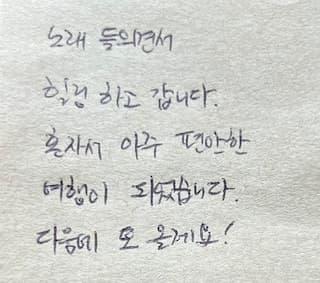 노래 들의견서
힐링 하고 갑니다.
혼자서 아주 편안한
여행이 되었습니다.
다음에 또 올게요!